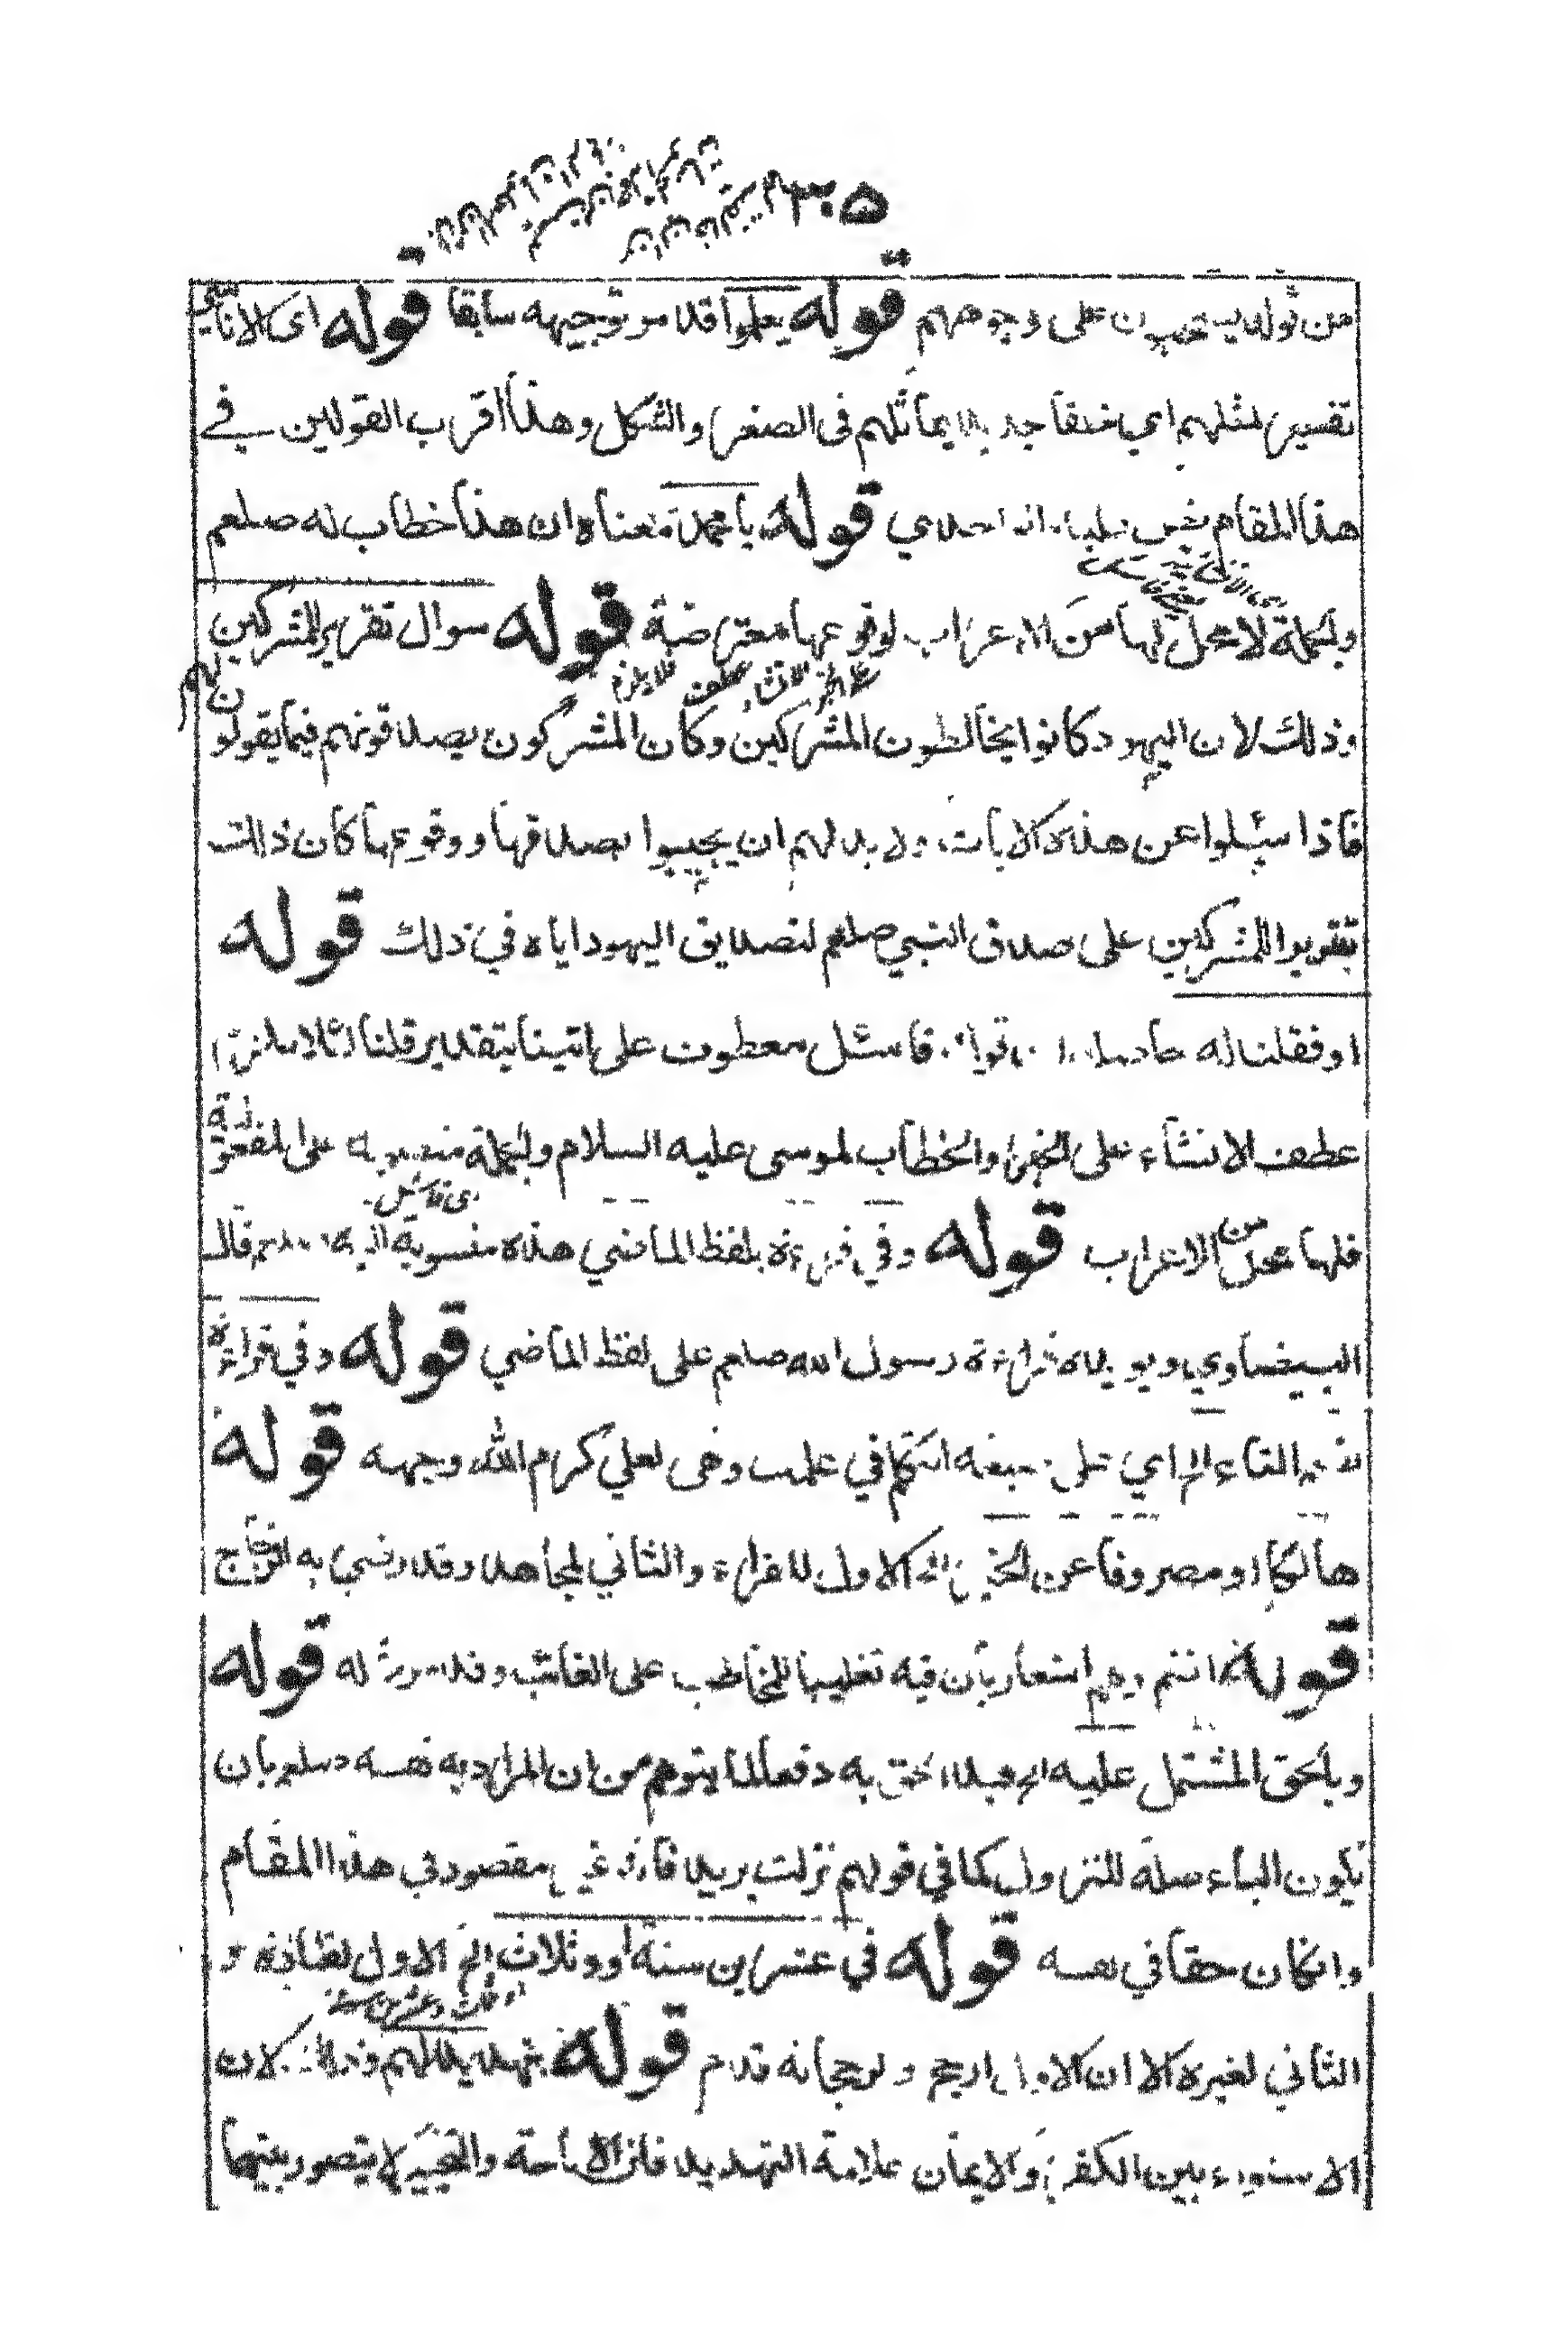 ٣٠٥
من قوله يسحبون على وجوههم قوله يعلموا قد مر توجيهه سابقا قوله اى الاناسي
تفسير لمثلهم اي خلقا جديدا يماثلهم فى الصغر والشكل وهذا اقرب القولين في
هذا المقام قوله يا محمد معناه ان هذا خطاب له صلعم
والجملة لا محل لها من الاعراب لوقوعها معترضة قوله سوال تقرير للمشركين
وذلك لان اليهود كانوا يخالطون المشركين وكان المشركون يصدقونهم فيما يقولون لهم
فاذا سئلوا عن هذه الايات ولا بد لهم ان يجيبوا بصدقها ووقوعها كان ذلك
تقريرا للمشركين على صدق النبي صلعم لتصديق اليهود اياه في ذلك قوله
او فقلنا له فاسئل معطوف على اتينا بتقدير قلنا لئلا يلزم
عطف الانشاء على الخبر والخطاب لموسى عليه السلام والجملة على المفعولية
فلها محل من الاعراب قوله وفي قراءة بلفظ الماضي هذه منسوبة اليه صلعم قال
البيضاوي ويويده قراءة رسول الله صلعم على لفظ الماضي قوله وفي قراءة
بضم التاء الخ اي على صيغة المتكلم في علمت وهى لعلي كرم الله وجهه قوله
هالكا او مصروفا عن الخير الخ الاول للفراء والثاني لمجاهد وقد رضي به الزجاج
قوله انتم وهم اشعار بان فيه تغليبا للمخاطب على الغائب وقد مر له قوله
وبالحق المشتمل عليه الخ قيد الحق به دفعا لما يتوهم من ان المراد به نفسه صلعم بان
تكون الباء صلة للنزول كما في قولهم نزلت بزيد فانه غير مقصود في هذا المقام
وان كان حقا في نفسه قوله في عشرين سنة او وثلاث الخ الاول لقتادة و
الثاني لغيره الا ان الاول ارجح ولرجحانه قدم قوله تهديد لهم وذلك لان
الاستواء بين الكفر والايمان علامة التهديد فان الاباحة والتخيير لا يتصور بينهما